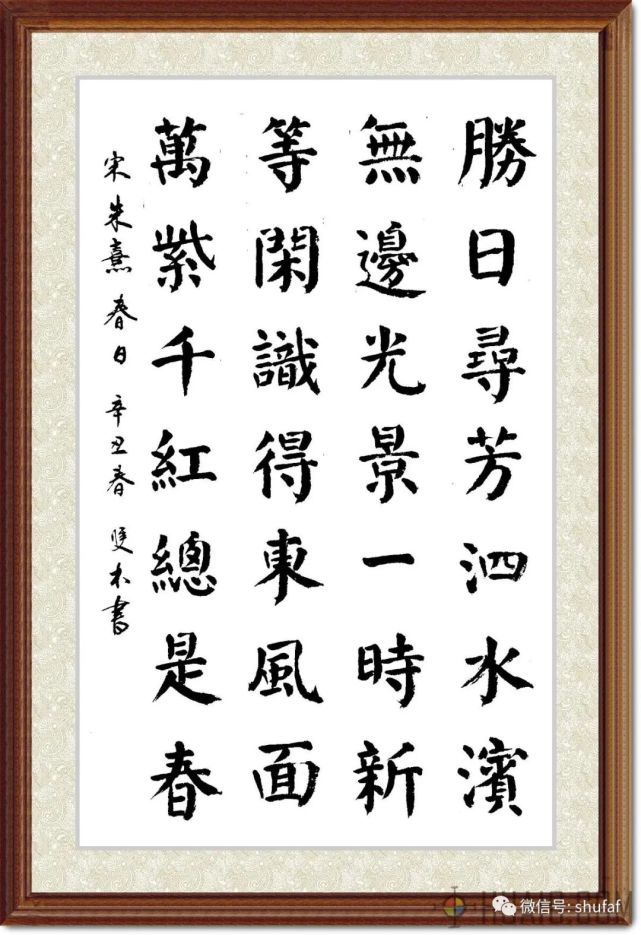 勝日尋芳泗水濱
無邊光景一時新
等閑識得東風面
萬紫千紅總是春
宋朱熹春日辛丑春 木書
微信号: shufaf